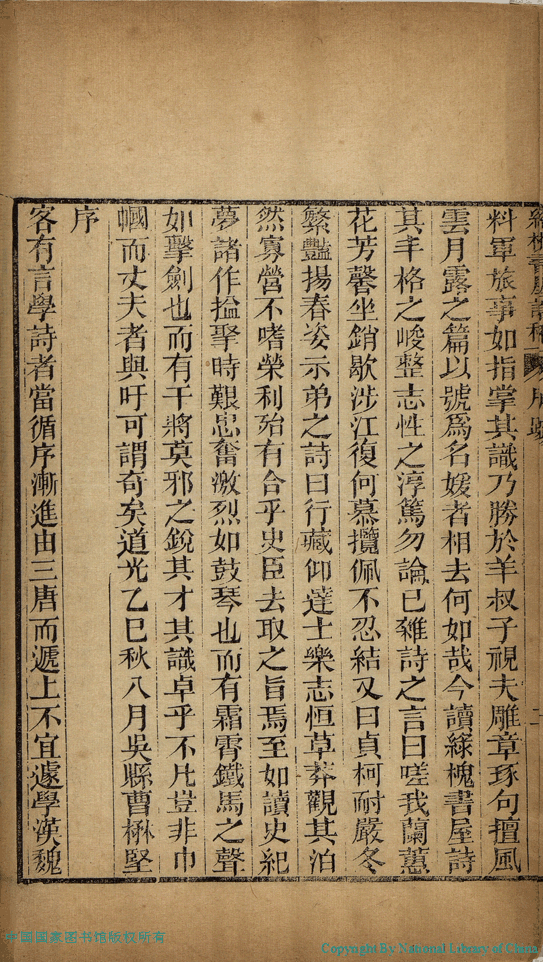 綠槐書屋詩稿 序跋 二
料軍旅事如指掌其識乃勝於羊叔子視夫雕章琢句擅風
雲月露之篇以號爲名媛者相去何如哉今讀綠槐書屋詩
其丰格之峻整志性之淳篤勿論已雜詩之言曰嗟我蘭蕙
花芳馨坐銷歇涉江復何慕攬佩不忍結又曰貞柯耐嚴冬
繁豔揚春姿示弟之詩曰行藏仰達士樂志恒草莽觀其泊
然寡營不嗜榮利殆有合乎史臣去取之旨焉至如讀史紀
夢諸作搤掔時艱忠奮激烈如鼓琴也而有霜霄鐵馬之聲
如擊劍也而有干將莫邪之銳其才其識卓乎不凡豈非巾
幗而丈夫者與吁可謂奇矣道光乙巳秋八月吳縣曹楙堅
序
客有言學詩者當循序漸進由三唐而遞上不宜遽學漢魏
中国国家图书馆版权所有
Copyright By National Library of China